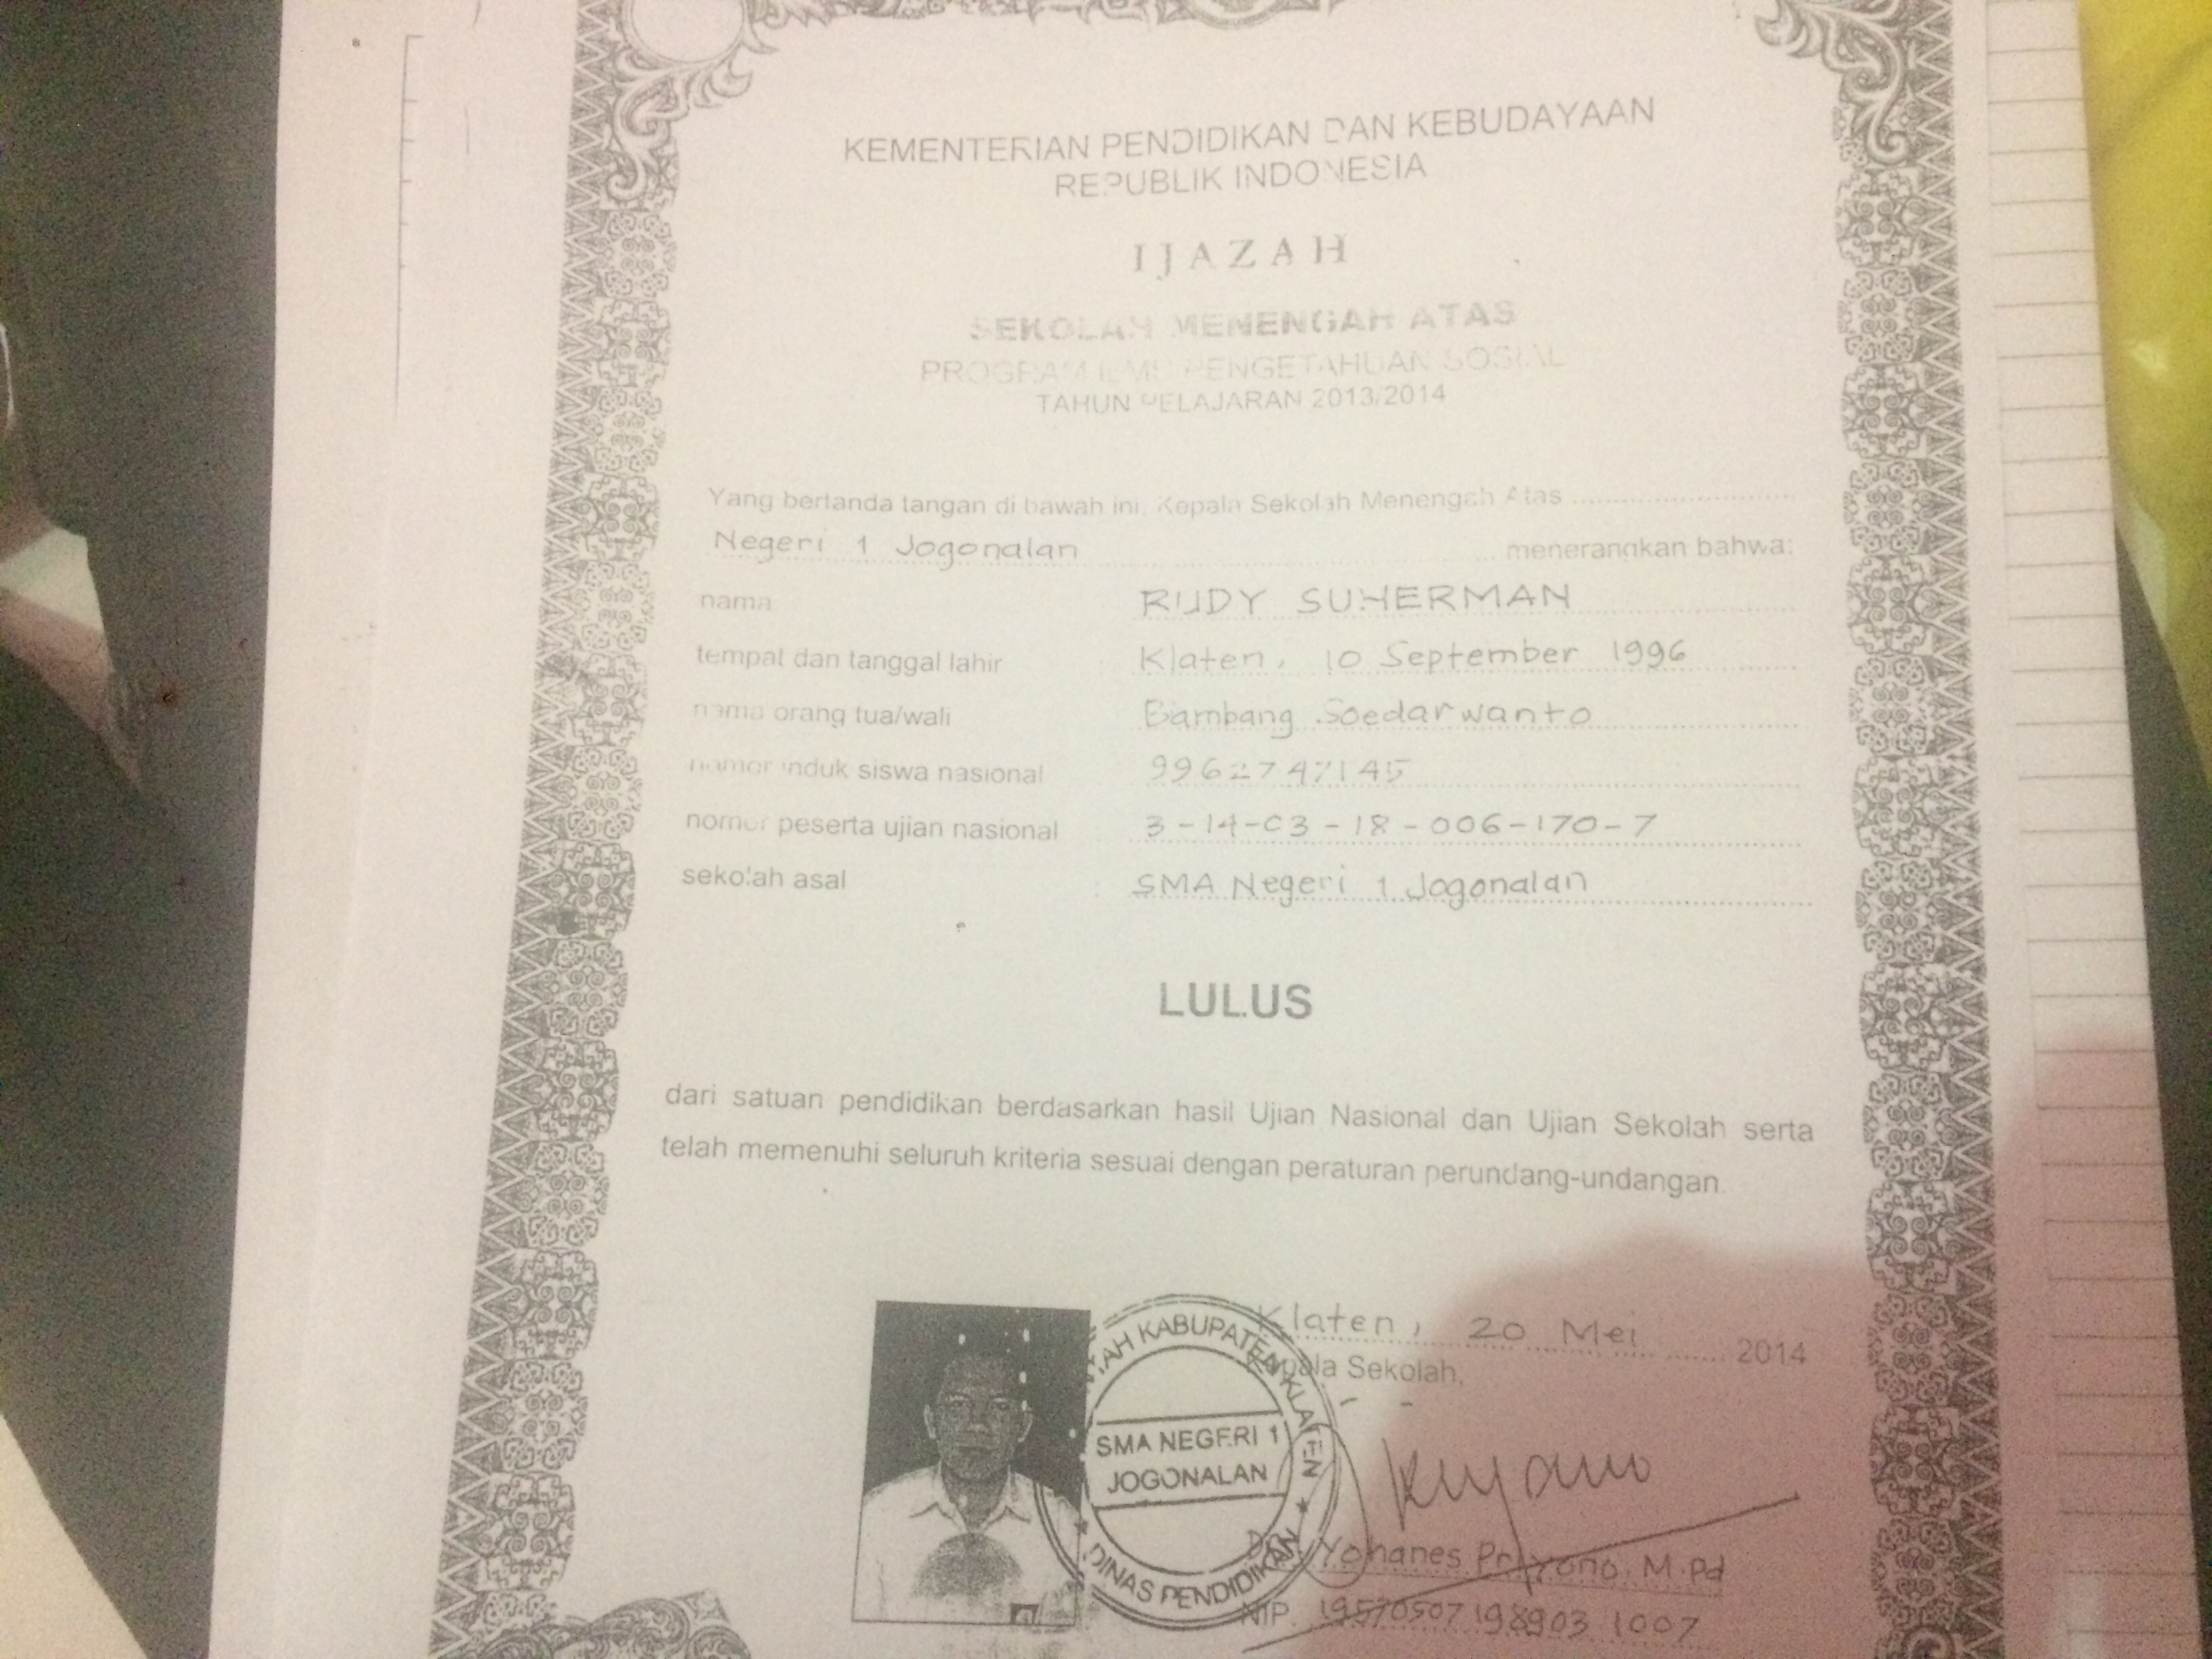 KEMENTERIAN PENDIDIKAN DAN KEBUDAYAAN
REPUBLIK INDONESIA
IJAZAH
SEKOLAH MENENGAH ATAS
PROGRAM ILMU PENGETAHUAN SOSIAL
TAHUN PELAJARAN 2013/2014
Yang bertanda tangan di bawah ini, Kepala Sekolah Menengah Atas
Negeri 1 Jogonalan menerangkan bahwa:
nama RUDY SUHERMAN
tempat dan tanggal lahir : Klaten, 10 September 1996
nama orang tua/wali Bambang Soedarwanto
nomor induk siswa nasional
nomor peserta ujian nasional : 3-14-03-18-006-170-7
sekolah asal : SMA Negeri 1 Jogonalan
LULUS
dari satuan pendidikan berdasarkan hasil Ujian Nasional dan Ujian Sekolah serta
telah memenuhi seluruh kriteria sesuai dengan peraturan perundang-undangan.
Klaten, 20 Mei 2014
Kepala Sekolah,
KABUPATEN KLATEN
SMA NEGERI 1
JOGONALAN
DINAS PENDIDIKAN
Yohanes Priyono, M.Pd
NIP. 19570507 198903 1007